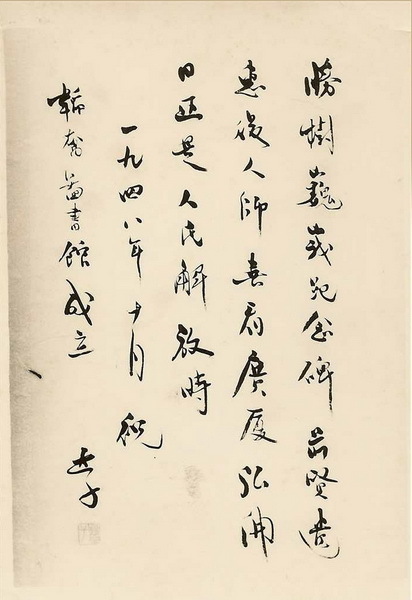 勝樹巍峩紀念碑賢遺
惠後人師喜看廣厦弘開
日正是人民解放時
一九四八年十月祝
韜奮圖書館成立